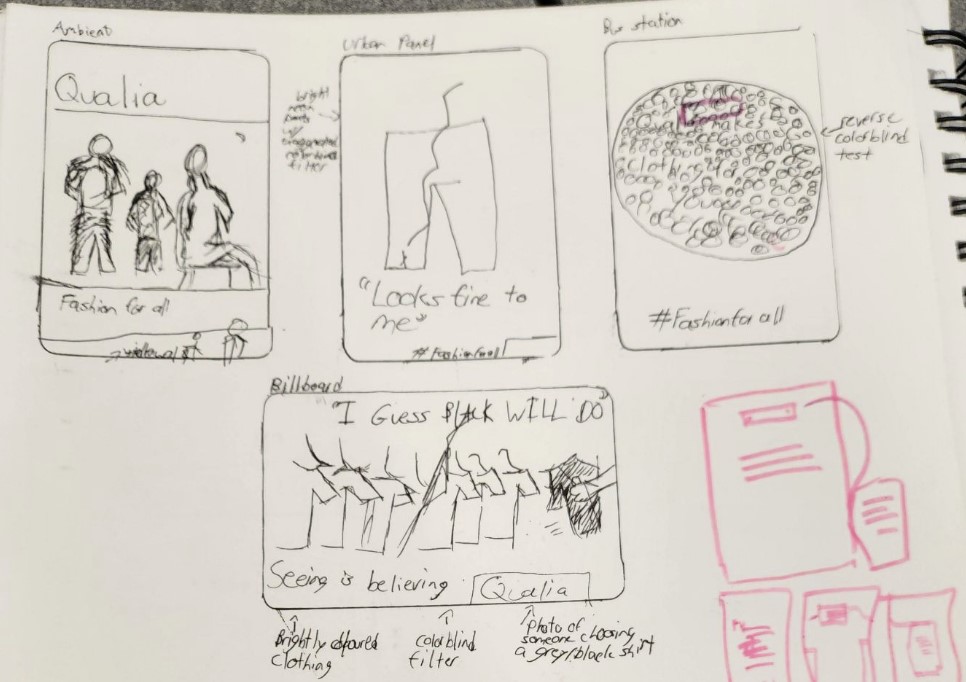 Ambient
Qualia
Fashion for all
Urban Panel
bright
neon
pants
w/
exaggerated
colorblind
filter
"Looks fine to
me"
#Fashionforall
Bus station
makes
clothing
reverse
colorblind
test
#Fashionforall
Billboard
"I GUESS BLACK WILL DO"
Seeing is believing
Qualia
Brightly coloured
clothing
colorblind
filter
Photo of
someone choosing
a grey/black shirt